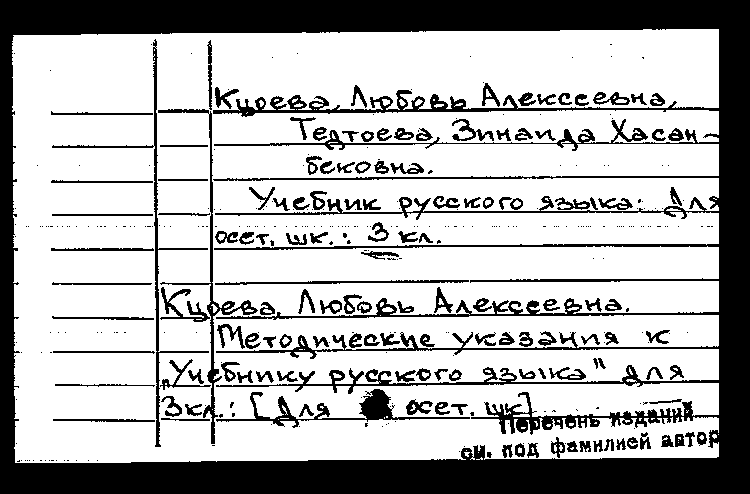 Куоева, Любовь Алексеевна,
Тедтоева, Зинаида Хасан-
бековна.
Учебник русского языка: Для
осет. шк.: 3 кл.
Куоева, Любовь Алексеевна.
Методические указания к
„Учебнику русского языка" для
3кл.: [Для осет. шк]
Перечень изданий
см. под фамилией автор